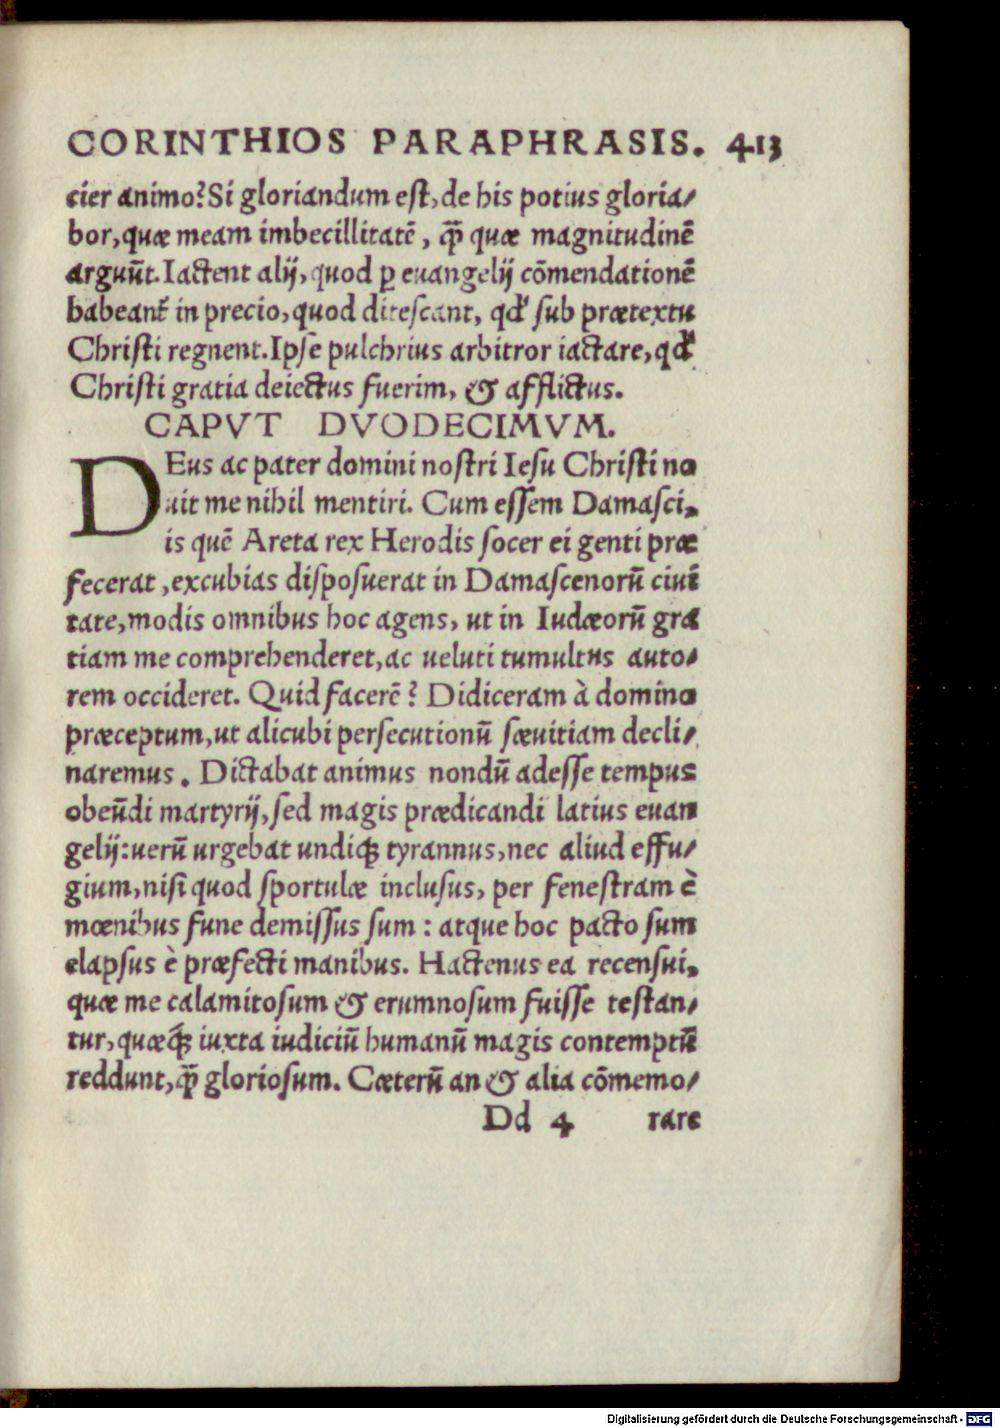 CORINTHIOS PARAPHRASIS. 413
cier animo? Si gloriandum est, de his potius gloria/
bor, quæ meam imbecillitatē, q̄ꝫ quæ magnitudinē
arguūt. Iactent alij, quod ꝑ euangelij cōmendationē
habeant̄ in precio, quod ditescant, qđ sub prætextu
Christi regnent. Ipse pulchrius arbitror iactare, qđ
Christi gratia deiectus fuerim, & afflictus.
CAPVT DVODECIMVM.
DEus ac pater domini nostri Iesu Christi no
uit me nihil mentiri. Cum essem Damasci,
is quē Areta rex Herodis socer ei genti præ
fecerat, excubias disposuerat in Damascenorū ciui
tate, modis omnibus hoc agens, ut in Iudæorū gra
tiam me comprehenderet, ac ueluti tumultus auto/
rem occideret. Quid facerē? Didiceram à domino
præceptum, ut alicubi persecutionū sæuitiam decli/
naremus. Dictabat animus nondū adesse tempus
obeūdi martyrij, sed magis prædicandi latius euan
gelij: uerū urgebat undiqꝫ tyrannus, nec aliud effu/
gium, nisi quod sportulæ inclusus, per fenestram è
mœnibus fune demissus sum: atque hoc pacto sum
elapsus è præfecti manibus. Hactenus ea recensui,
quæ me calamitosum & erumnosum fuisse testan/
tur, quæqꝫ́ iuxta iudiciū humanū magis contemptū
reddunt, q̄ꝫ gloriosum. Cæterū an & alia cōmemo/
Dd 4 rare
Digitalisierung gefördert durch die Deutsche Forschungsgemeinschaft - DFG